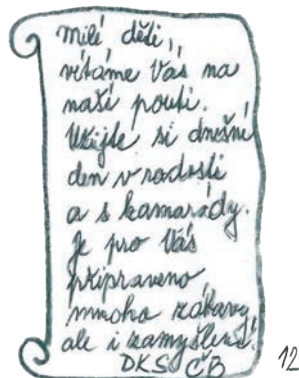 Milé děti,
vítáme Vás na
naší pouti.
Užijte si dnešní
den v radosti
a s kamarády.
Je pro Vás
připraveno
mnoho zábavy,
ale i zamyšlení.
DKS ČB
12